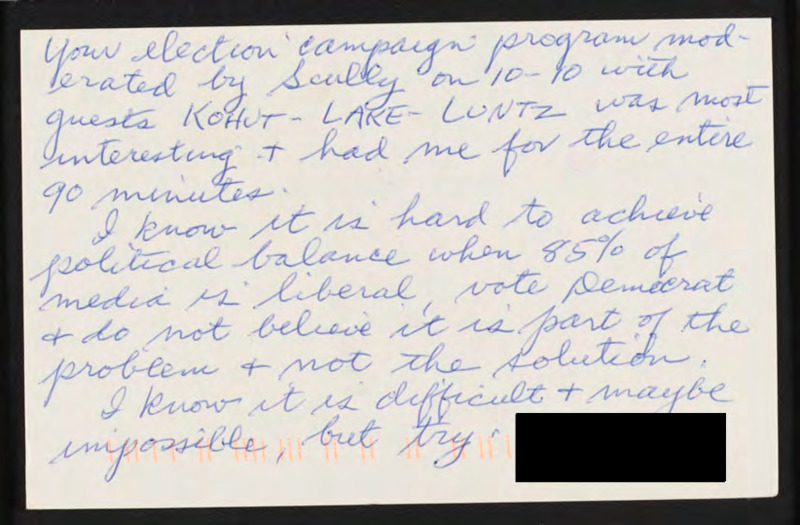 Your election campaign program mod-
erated by Scully on 10-10 with
guests KOHUT - LAKE - LUNTZ was most
interesting + had me for the entire
90 minutes.
I know it is hard to achieve
political balance when 85% of
media is liberal, vote Democrat
+ do not believe it is part of the
problem + not the solution.
I know it is difficult + maybe
impossible, but try.